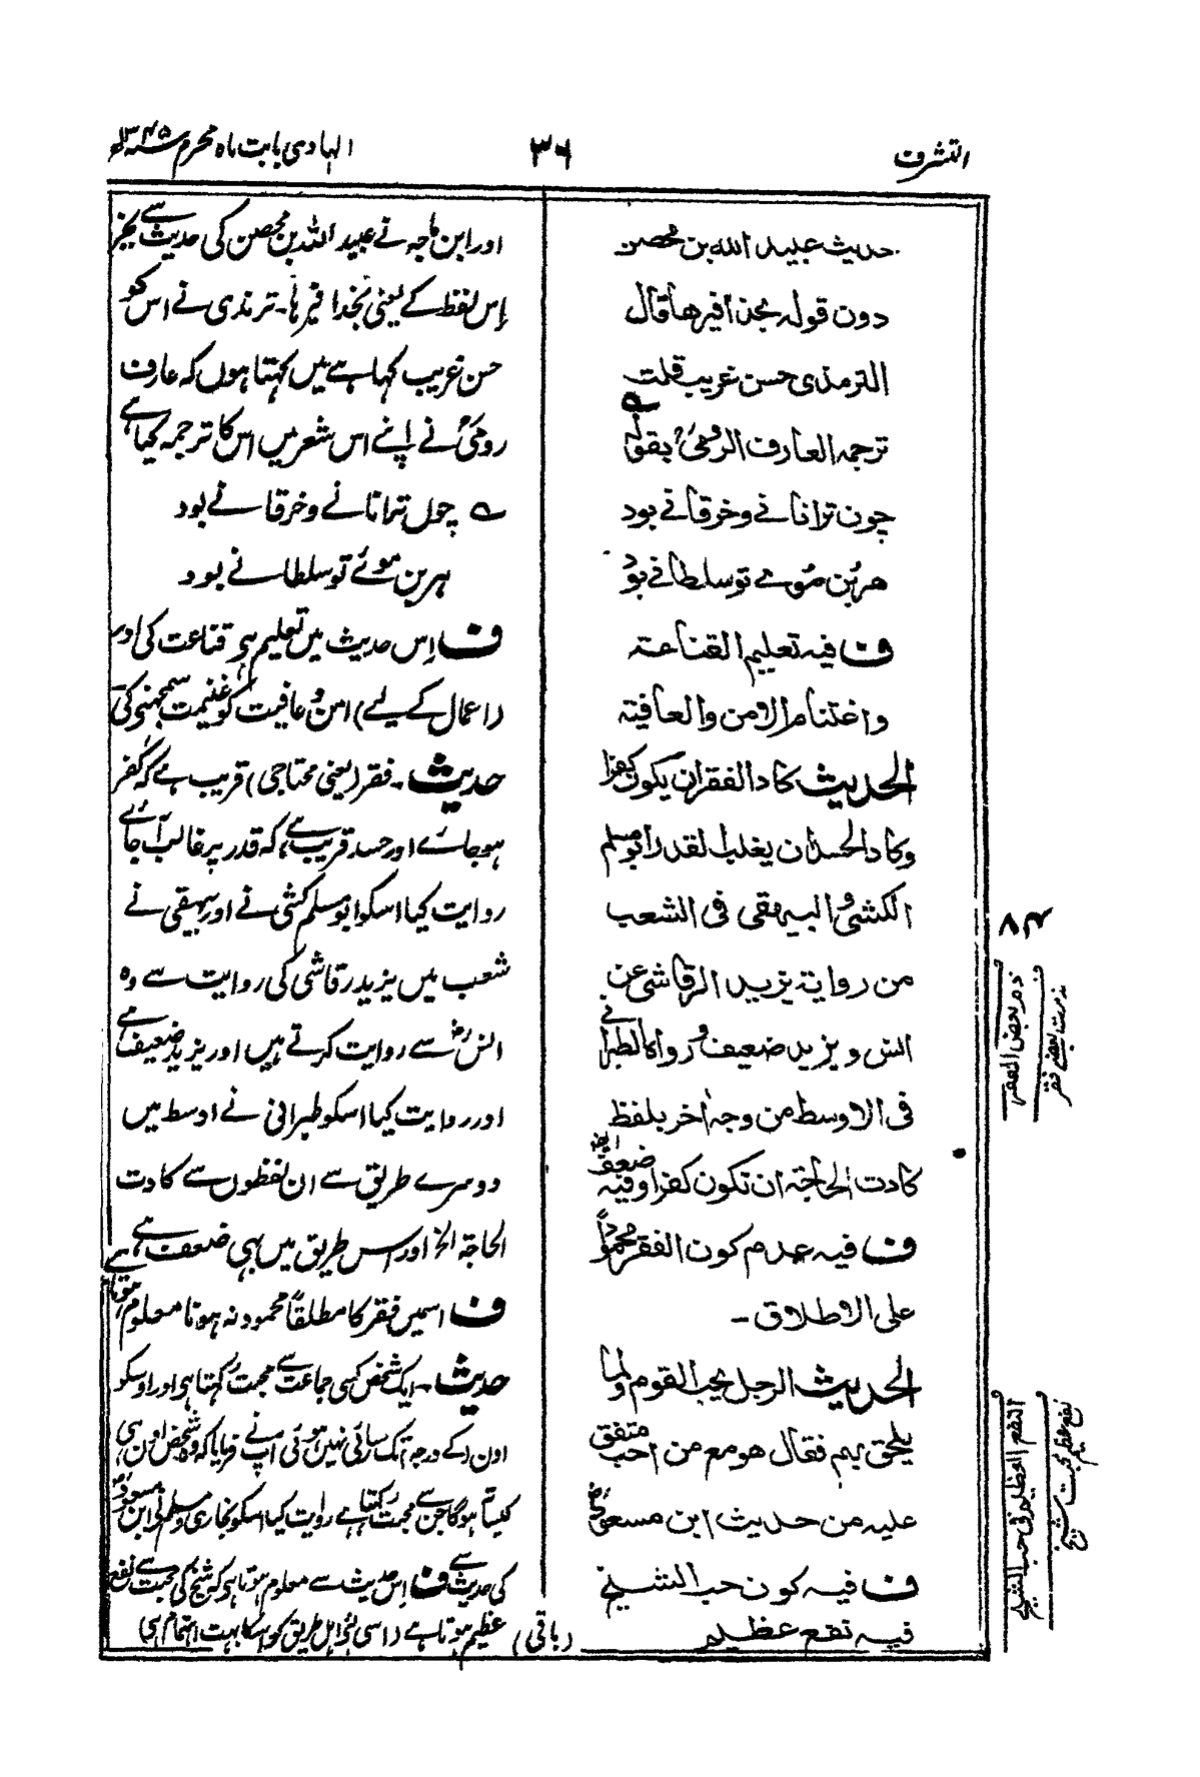 التشرف
٣٦
الہادی بابت ماہ محرم ۱۳۴۵ھ
حدیث عبید اللہ بن محصن
دون قولہ بحذافیرھا قال
الترمذی حسن غریب قلت
ترجمہ العارف الرومیؒ بقولہ
چون ترا نانے و خرقانے بود
ھر بُن موئے تو سلطانے بود
ف فیہ تعلیم القناعۃ
واغتنام الامن والعافیۃ
الحدیث کاد الفقر ان یکون کفرا
وکاد الحسد ان یغلب القدر ابو مسلم
الکشی و البیہقی فی الشعب
من روایۃ یزید الرقاشی عن
انس و یزید ضعیف و رواہ الطبرانی
فی الاوسط من وجہ اٰخر بلفظ
کادت الحاجۃ ان تکون کفرا وفیہ ضعف ایضا
ف فیہ عدم کون الفقر محمودًا
علی الاطلاق ـ
الحدیث الرجل یحب القوم ولما
یلحق بہم فقال ھو مع من احب متفق
علیہ من حدیث ابن مسعودؓ
ف فیہ کون حب الشیخ
فیہ نفع عظیم
اور ابن ماجہ نے عبید اللہ بن محصن کی حدیث سے بجز
اِس لفظ کے یعنی بحذافیرہا۔ ترمذی نے اس کو
حسن غریب کہا ہے میں کہتا ہوں کہ عارف
رومیؒ نے اپنے اس شعر میں اس کا ترجمہ کیا ہے
چوں ترا نانے و خرقانے بود
ہر بن موئے تو سلطانے بود
ف اِس حدیث میں تعلیم ہی قناعت کی اور
(اعمال کے لیے) امن و عافیت کو غنیمت سمجہنی کی
حدیث۔ فقر (یعنی محتاجی) قریب ہے کہ کفر
ہو جائے اور حسد قریب ہے کہ قدر پر غالب آ جائے
روایت کیا اسکو ابو مسلم کشی نے اور بیہقی نے
شعب میں یزید رقاشی کی روایت سے وہ
انسؓ سے روایت کرتے ہیں اور یزید ضعیف ہے
اور روایت کیا اسکو طبرانی نے اوسط میں
دوسرے طریق سے ان لفظوں سے کادت
الحاجۃ الخ اور اس طریق میں بہی ضعف ہے
ف اسمیں فقر کا مطلقاً محمود نہ ہونا معلوم ہوتا ہے
حدیث۔ ایک شخص کسی جماعت سے محبت رکہتا ہی اور اوسکو
اون کے درجہ تک رسائی نہیں ہوئی آپ نے فرمایا کہ وہ شخص اون ہی
کیساتھ ہوگا جن سے محبت رکہتا ہے روایت کیا اسکو بخاری و مسلم نی ابن مسعودؓ
کی حدیث سے ف اِس حدیث سے معلوم ہوتا ہی کہ شیخ کی محبت سے نفع
عظیم ہوتا ہے (اسی لئے اہل طریق کو اسکا بہت اہتمام ہی (باقی)
۸۴
ذم بعض الفقر
مذمت بعضے فقر
النفع العظیم فی حب الشیخ
نفع عظیم محبت شیخ